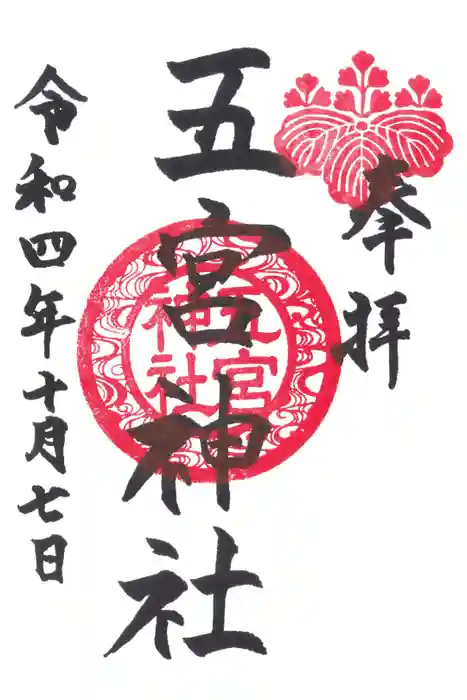 奉拝
五宮神社
五宮
神社
令和四年十月七日